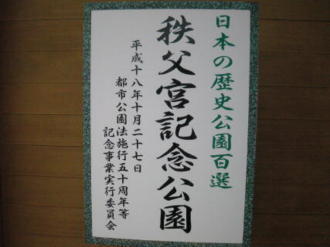 日本の歴史公園百選
秩父宮記念公園
平成十八年十月二十七日
都市公園法施行五十周年等
記念事業実行委員会